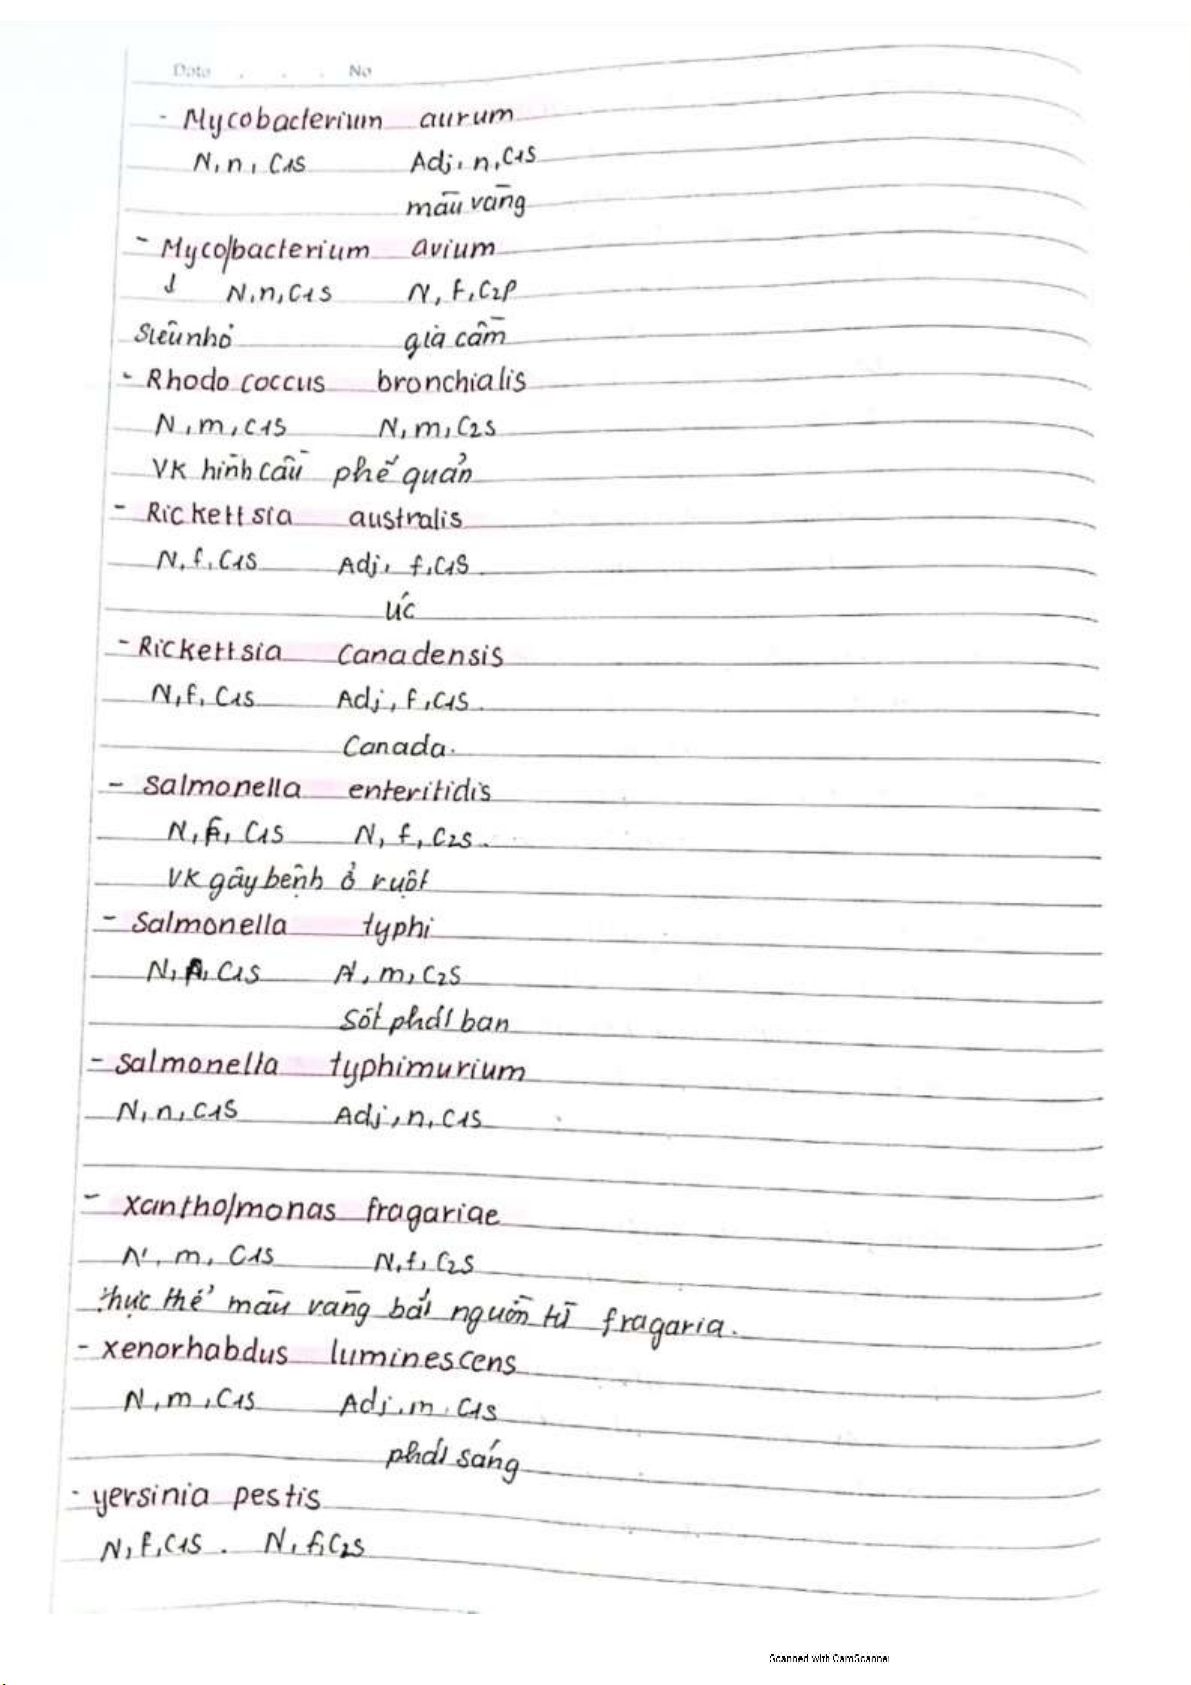 Date . . . No
- Mycobacterium aurum
N, n, C1S Adj, n, C1S
màu vàng
- Myco/bacterium avium
↓ N, n, C1S N, f, C2P
Siêu nhỏ gia cầm
- Rhodo coccus bronchialis
N, m, C1S N, m, C2S
VK hình cầu phế quản
- Rickettsia australis
N, f, C1S Adj, f, C1S
Úc
- Rickettsia Canadensis
N, f, C1S Adj, f, C1S.
Canada.
- Salmonella enteritidis
N, f, C1S N, f, C2S.
VK gây bệnh ở ruột
- Salmonella typhi
N, C1S N, m, C2S
Sốt phát ban
- Salmonella typhimurium
N, n, C1S Adj, n, C1S
- Xantho/monas fragariae
N, m, C1S N, f, C2S
thực thể màu vàng bắt nguồn từ fragaria.
- Xenorhabdus luminescens
N, m, C1S Adj, m, C1S
phát sáng
- yersinia pestis
N, f, C1S. N, f, C2S
Scanned with CamScanner